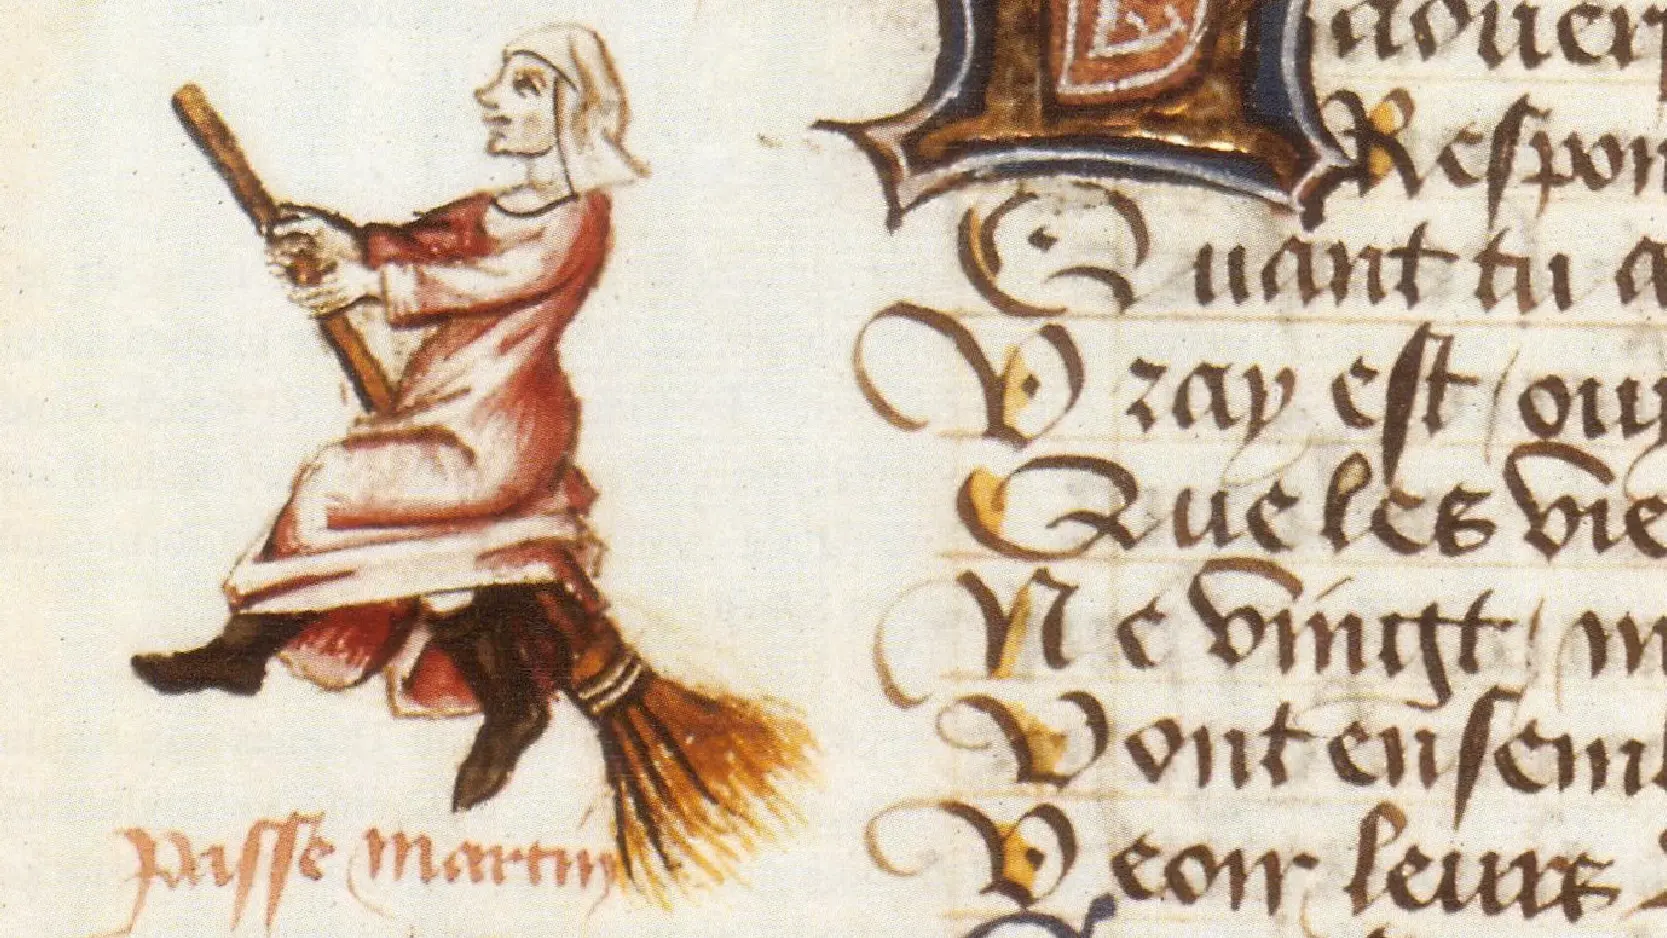 passe martin
adouer
Respon
Quant tu a
Vray est / ouy
Que les vie
Ne vingt / m
Vont ensemb
Veoir leurs